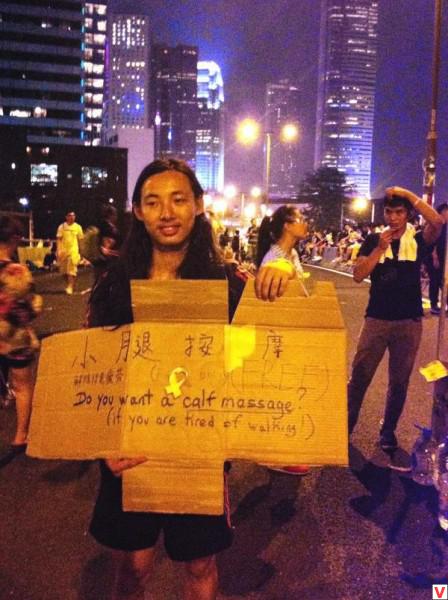 小 月退 按 摩
(FREE)
Do you want a calf massage?
(if you are tired of walking!)
V